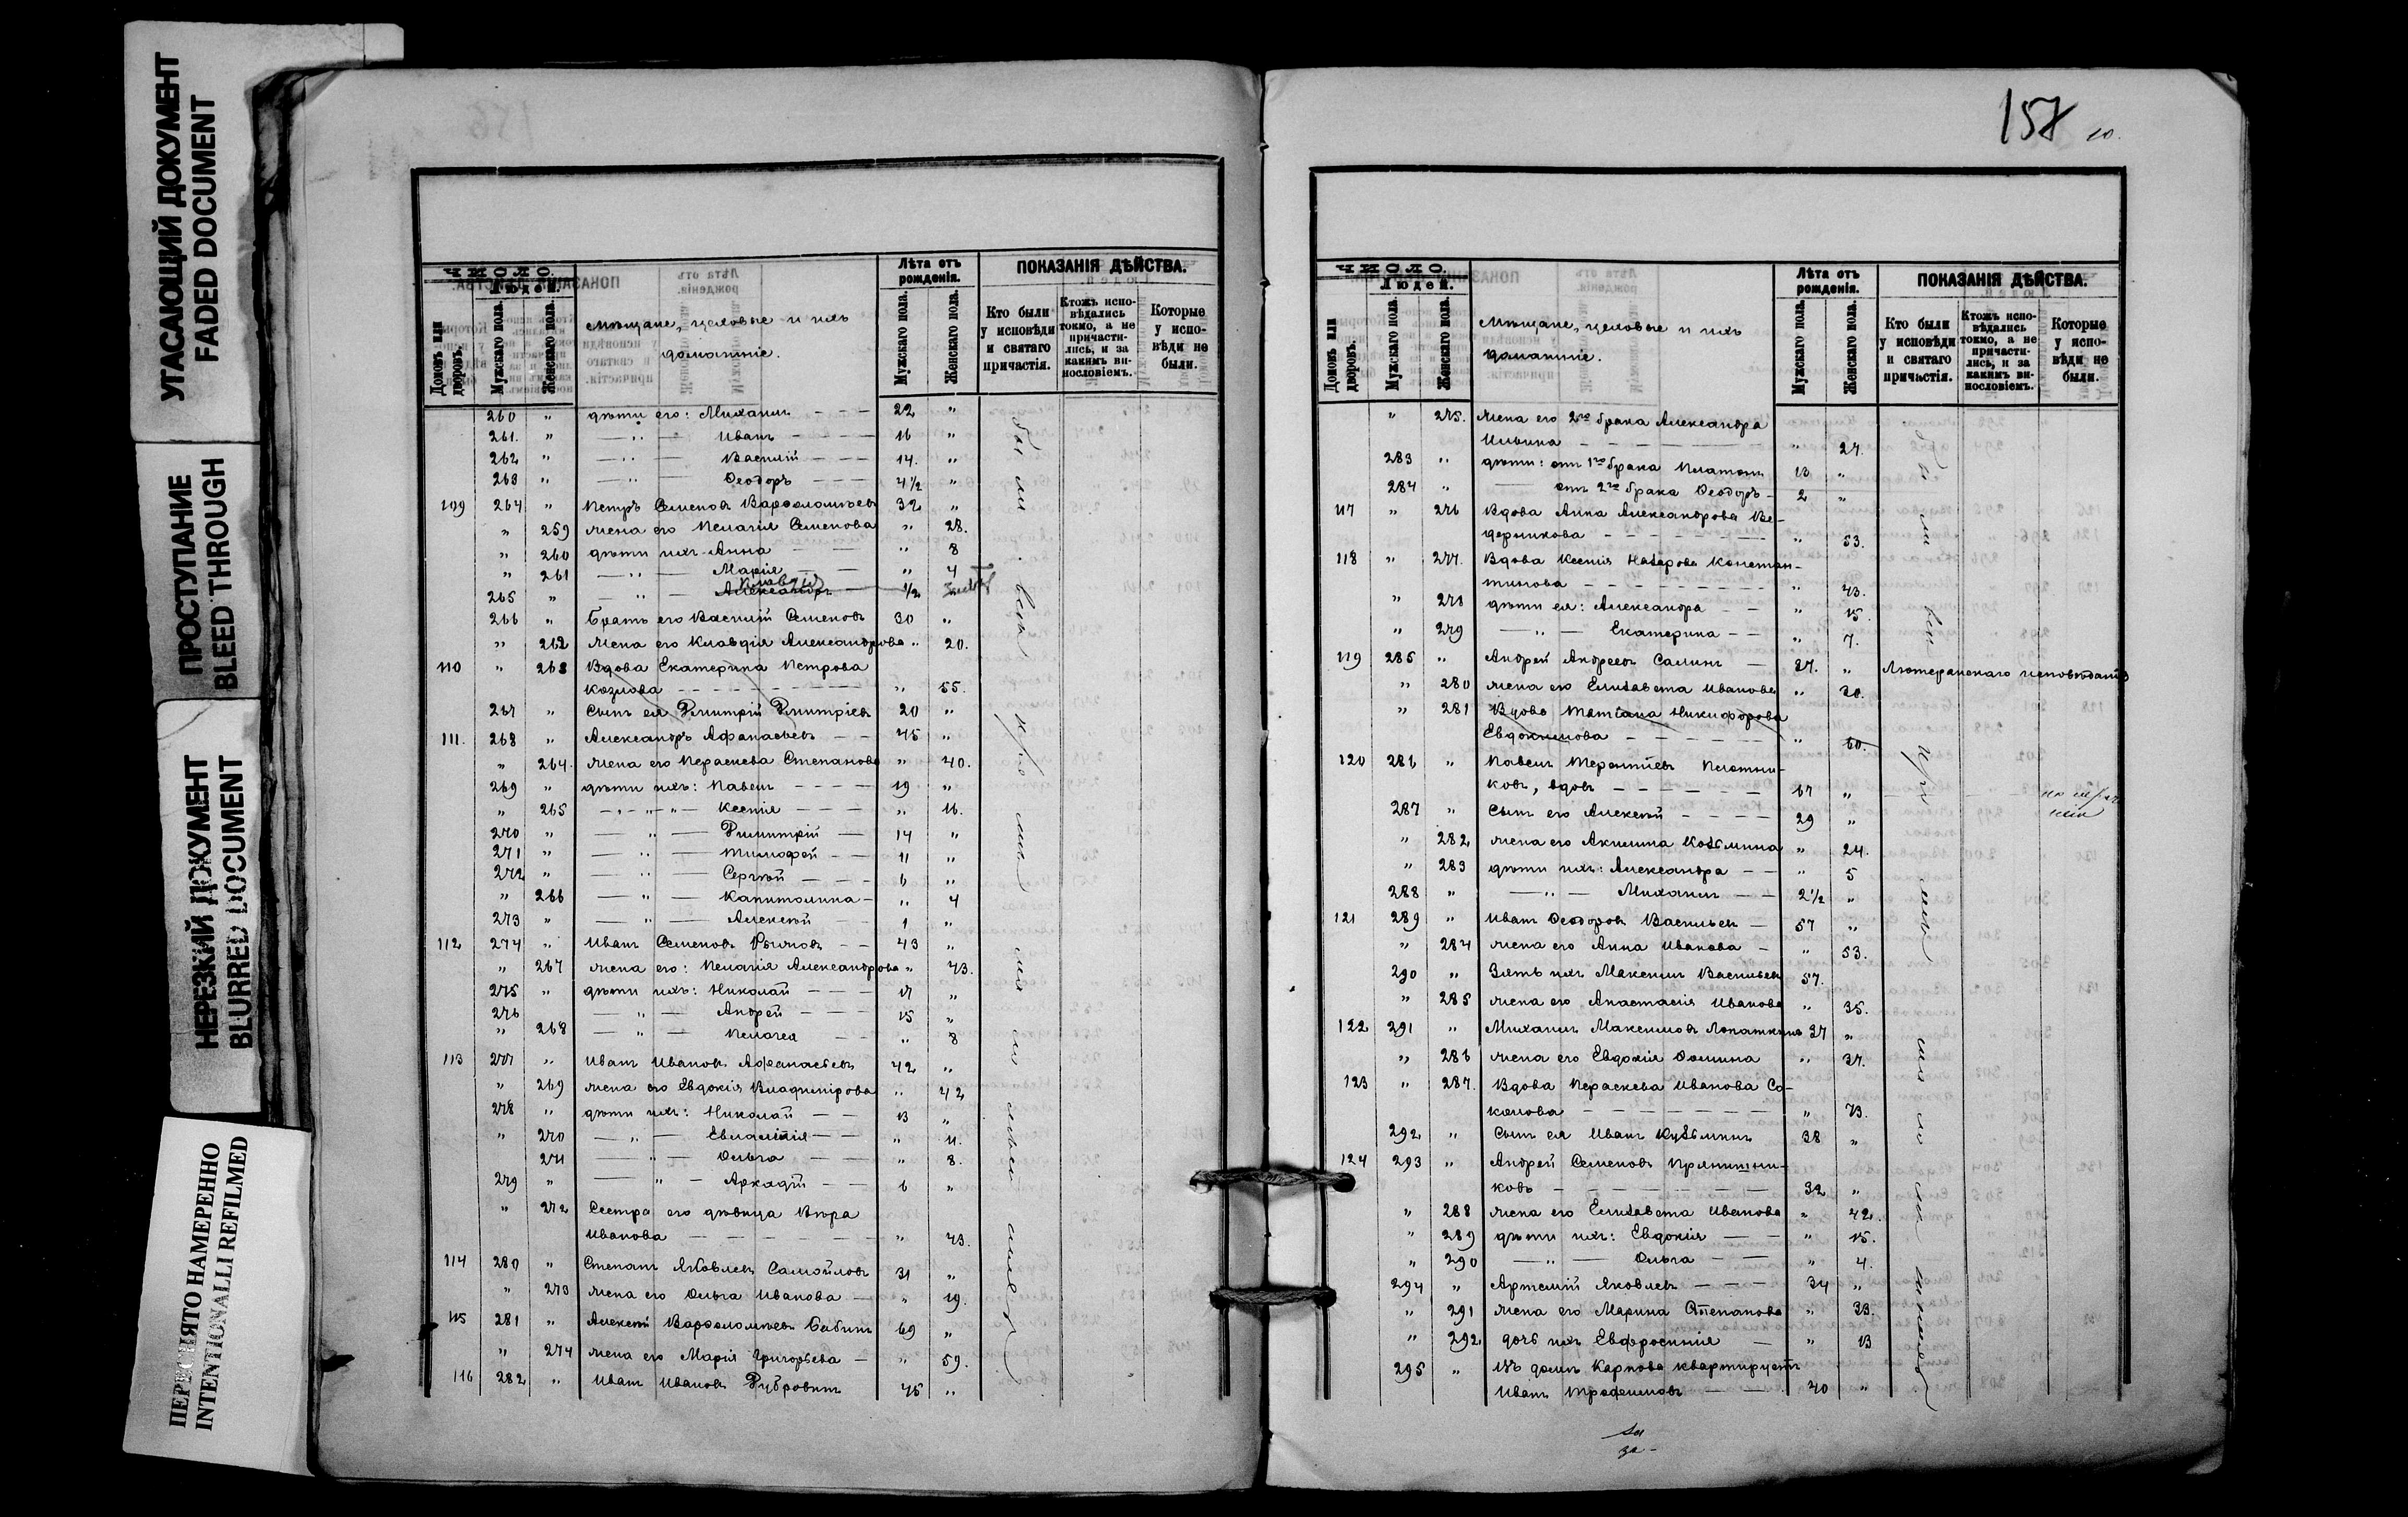 УГАСАЮЩИЙ ДОКУМЕНТ
FADED DOCUMENT
ПРОСТУПАНИЕ
BLEED THROUGH
НЕРЕЗКИЙ ДОКУМЕНТ
BLURRED DOCUMENT
ПЕРЕСНЯТО НАМЕРЕННО
INTENTIONALLI REFILMED
ЧИСЛО.
Людей.
Домовъ или дворовъ.
Мужскаго пола.
Женскаго пола.
Мѣщане, цеховые и ихъ
домашніе.
Лѣта отъ рожденія.
Мужскаго пола.
Женскаго пола.
ПОКАЗАНІЯ ДѢЙСТВА.
Кто были у исповѣди и святаго причастія.
Ктожъ исповѣдались токмо, а не причастились, и за какимъ винословіемъ.
Которые у исповѣди не были.
260 " дѣти его: Михаилъ - - - 22 "
261. " — " — Иванъ - - - 16 "
262 " — " — Василій - - - 14. "
263 " — " — Ѳеодоръ - - - 4½ "
109 264 " Петръ Семеновъ Варѳоломѣевъ 32 "
" 259 жена его Пелагія Семенова " 28.
" 260 дѣти ихъ: Анна — — " 8
" 261 — " — Марія — — " 4
265 " — " — Александръ ½
266 " Братъ его Василій Семеновъ 30 "
" 262 жена его Клавдія Александрова " 20.
110 " 263 Вдова Екатерина Петрова
Козлова - - - - - " 55.
267 " Сынъ ея Димитрій Димитріевъ 20 "
111. 268 " Александръ Аѳанасьевъ - - 45 "
" 264. жена его Параскева Степанова " 40.
269 " дѣти ихъ: Павелъ - - - 19 "
" 265 — " — Ксенія - - - " 16.
270 " — " — Димитрій — 14 "
271 " — " — Тимофей - - 11 "
272 " — " — Сергѣй - - - 6 "
" 266 — " — Капитолина - " 4
273 " — " — Алексѣй - - 1 "
112 274 " Иванъ Семеновъ - - 43 "
" 267 жена его: Пелагія Александрова " 43.
275 " дѣти ихъ: Николай - - - 17 "
276 — " — Андрей - - - 15 "
" 268 — " — Пелагея - - " 8
113 277 " Иванъ Ивановъ Аѳанасьевъ 42 "
" 269 жена его Евдокія Владимірова " 42
278 " дѣти ихъ: Николай — — 13 "
" 270 — " — Евлампія — — " 11.
271 — " — Ольга — — " 8.
279 " — " — Аркадій — — 6 "
" 272 Сестра его дѣвица Вѣра
Иванова — — — — " 43.
114 280 " Степанъ Яковлевъ Самойловъ 31 "
" 273 жена его Ольга Иванова — " 19.
115 281 " Алексѣй Варѳоломѣевъ Бабинъ 69 "
" 274 жена его Марія Григорьева — " 59.
116 282 " Иванъ Ивановъ Дубровинъ 45 "
157
ЧИСЛО.
Людей.
Домовъ или дворовъ.
Мужскаго пола.
Женскаго пола.
Мѣщане, цеховые и ихъ
домашніе.
Лѣта отъ рожденія.
Мужскаго пола.
Женскаго пола.
ПОКАЗАНІЯ ДѢЙСТВА.
Кто были у исповѣди и святаго причастія.
Ктожъ исповѣдались токмо, а не причастились, и за какимъ винословіемъ.
Которые у исповѣди не были.
" 275. жена его 2го брака Александра
Ильина — — — — " 27.
283 " дѣти: отъ 1го брака Платонъ 13 "
284 " — отъ 2го брака Ѳеодоръ - 2 "
117 " 276 Вдова Анна Александрова Ве-
черникова - - - - - " 53.
118 " 277. Вдова Ксенія Назарова Констан-
тинова - - - - - - " 43.
" 278 дѣти ея: Александра — — " 15.
" 279 — " — Екатерина - - " 7.
119 285 " Андрей Андреевъ Салинъ — 37. " Лютеранскаго исповѣданія
" 280 жена его Елизавета Иванова " 30.
" 281 Вдова Татіана Никифорова
Евдокимова - - - - - " 60.
120 286 " Павелъ Терентіевъ Плотни-
ковъ, вдовъ - - - - - 67 "
287 " Сынъ его Алексѣй - - - - 29 "
" 282 жена его Акилина Козьмина " 24.
" 283 дѣти ихъ: Александра - - " 5
288 " — " — Михаилъ — — 2½ "
121 289 " Иванъ Ѳеодоровъ Васильевъ — 57 "
" 284 жена его Анна Иванова - " 53.
290 " Зять ихъ Максимъ Васильевъ 57.
" 285 жена его Анастасія Иванова " 35.
122 291 " Михаилъ Максимовъ Лопаткинъ 37 "
" 286 жена его Евдокія Ѳомина " 37.
123 " 287. Вдова Параскева Иванова Со-
колова — — — — " 73.
292 " Сынъ ея Иванъ Кузьминъ 38 "
124 293 " Андрей Семеновъ Прянишни-
ковъ — — — — 32 "
" 288 жена его Елизавета Иванова " 42.
" 289 дѣти ихъ: Евдокія — — " 15.
" 290 — " — Ольга — — " 4.
294 " Артемій Яковлевъ — — 34 "
" 291 жена его Марина Степанова " 33.
" 292 дочь ихъ Евфросинія — " 13
295 " Въ домѣ Карпова квартируетъ
Иванъ Трофимовъ — — 40 "